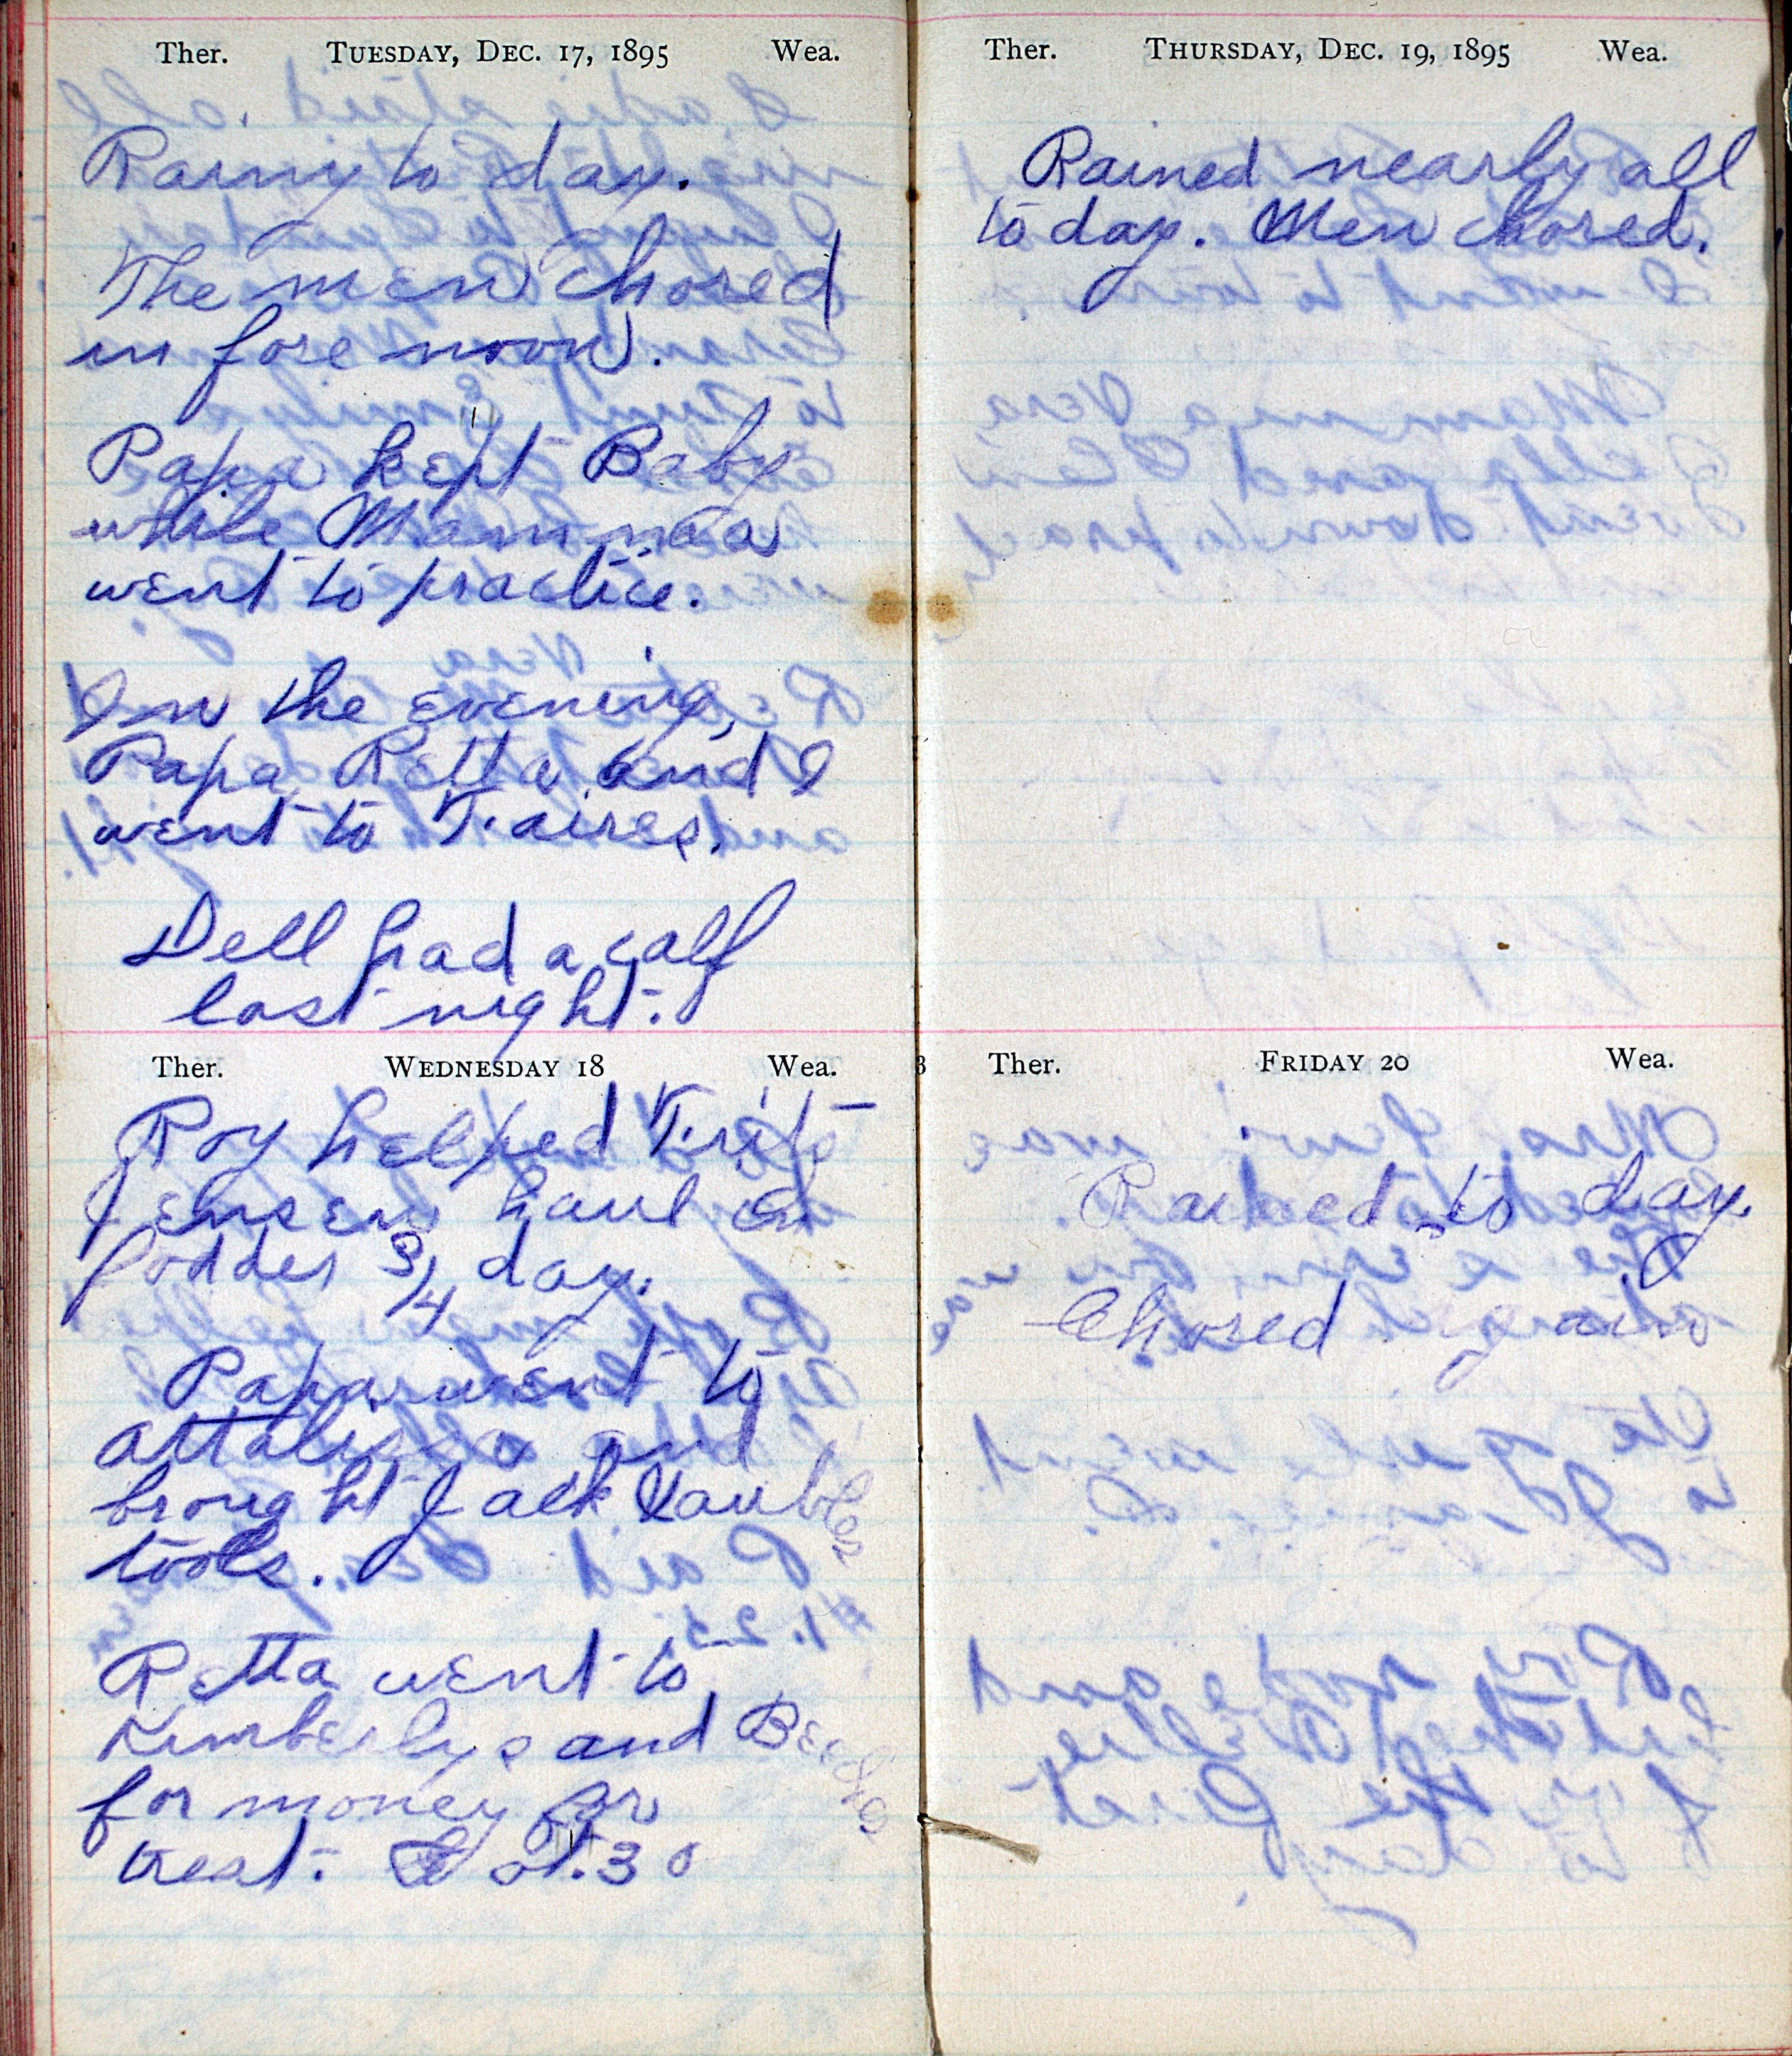 Ther. TUESDAY, DEC. 17, 1895 Wea.
Rainy to day.
The men chored
in fore noon.
Papa kept Baby
while Mamma
went to practice.
In the evening,
Papa, Retta and I
went to Faires.
Dell had a calf
last night.
Ther. WEDNESDAY 18 Wea.
Roy helped Frits
Jensen haul in
fodder 3/4 day.
Papa went to
attalissa and
brought Jack
tools.
Retta went to
Kimberlys and Beebes
for money for
treat. .30
Ther. THURSDAY, DEC. 19, 1895 Wea.
Rained nearly all
to day. Men chored.
Ther. FRIDAY 20 Wea.
Rained to day.
Chored gain